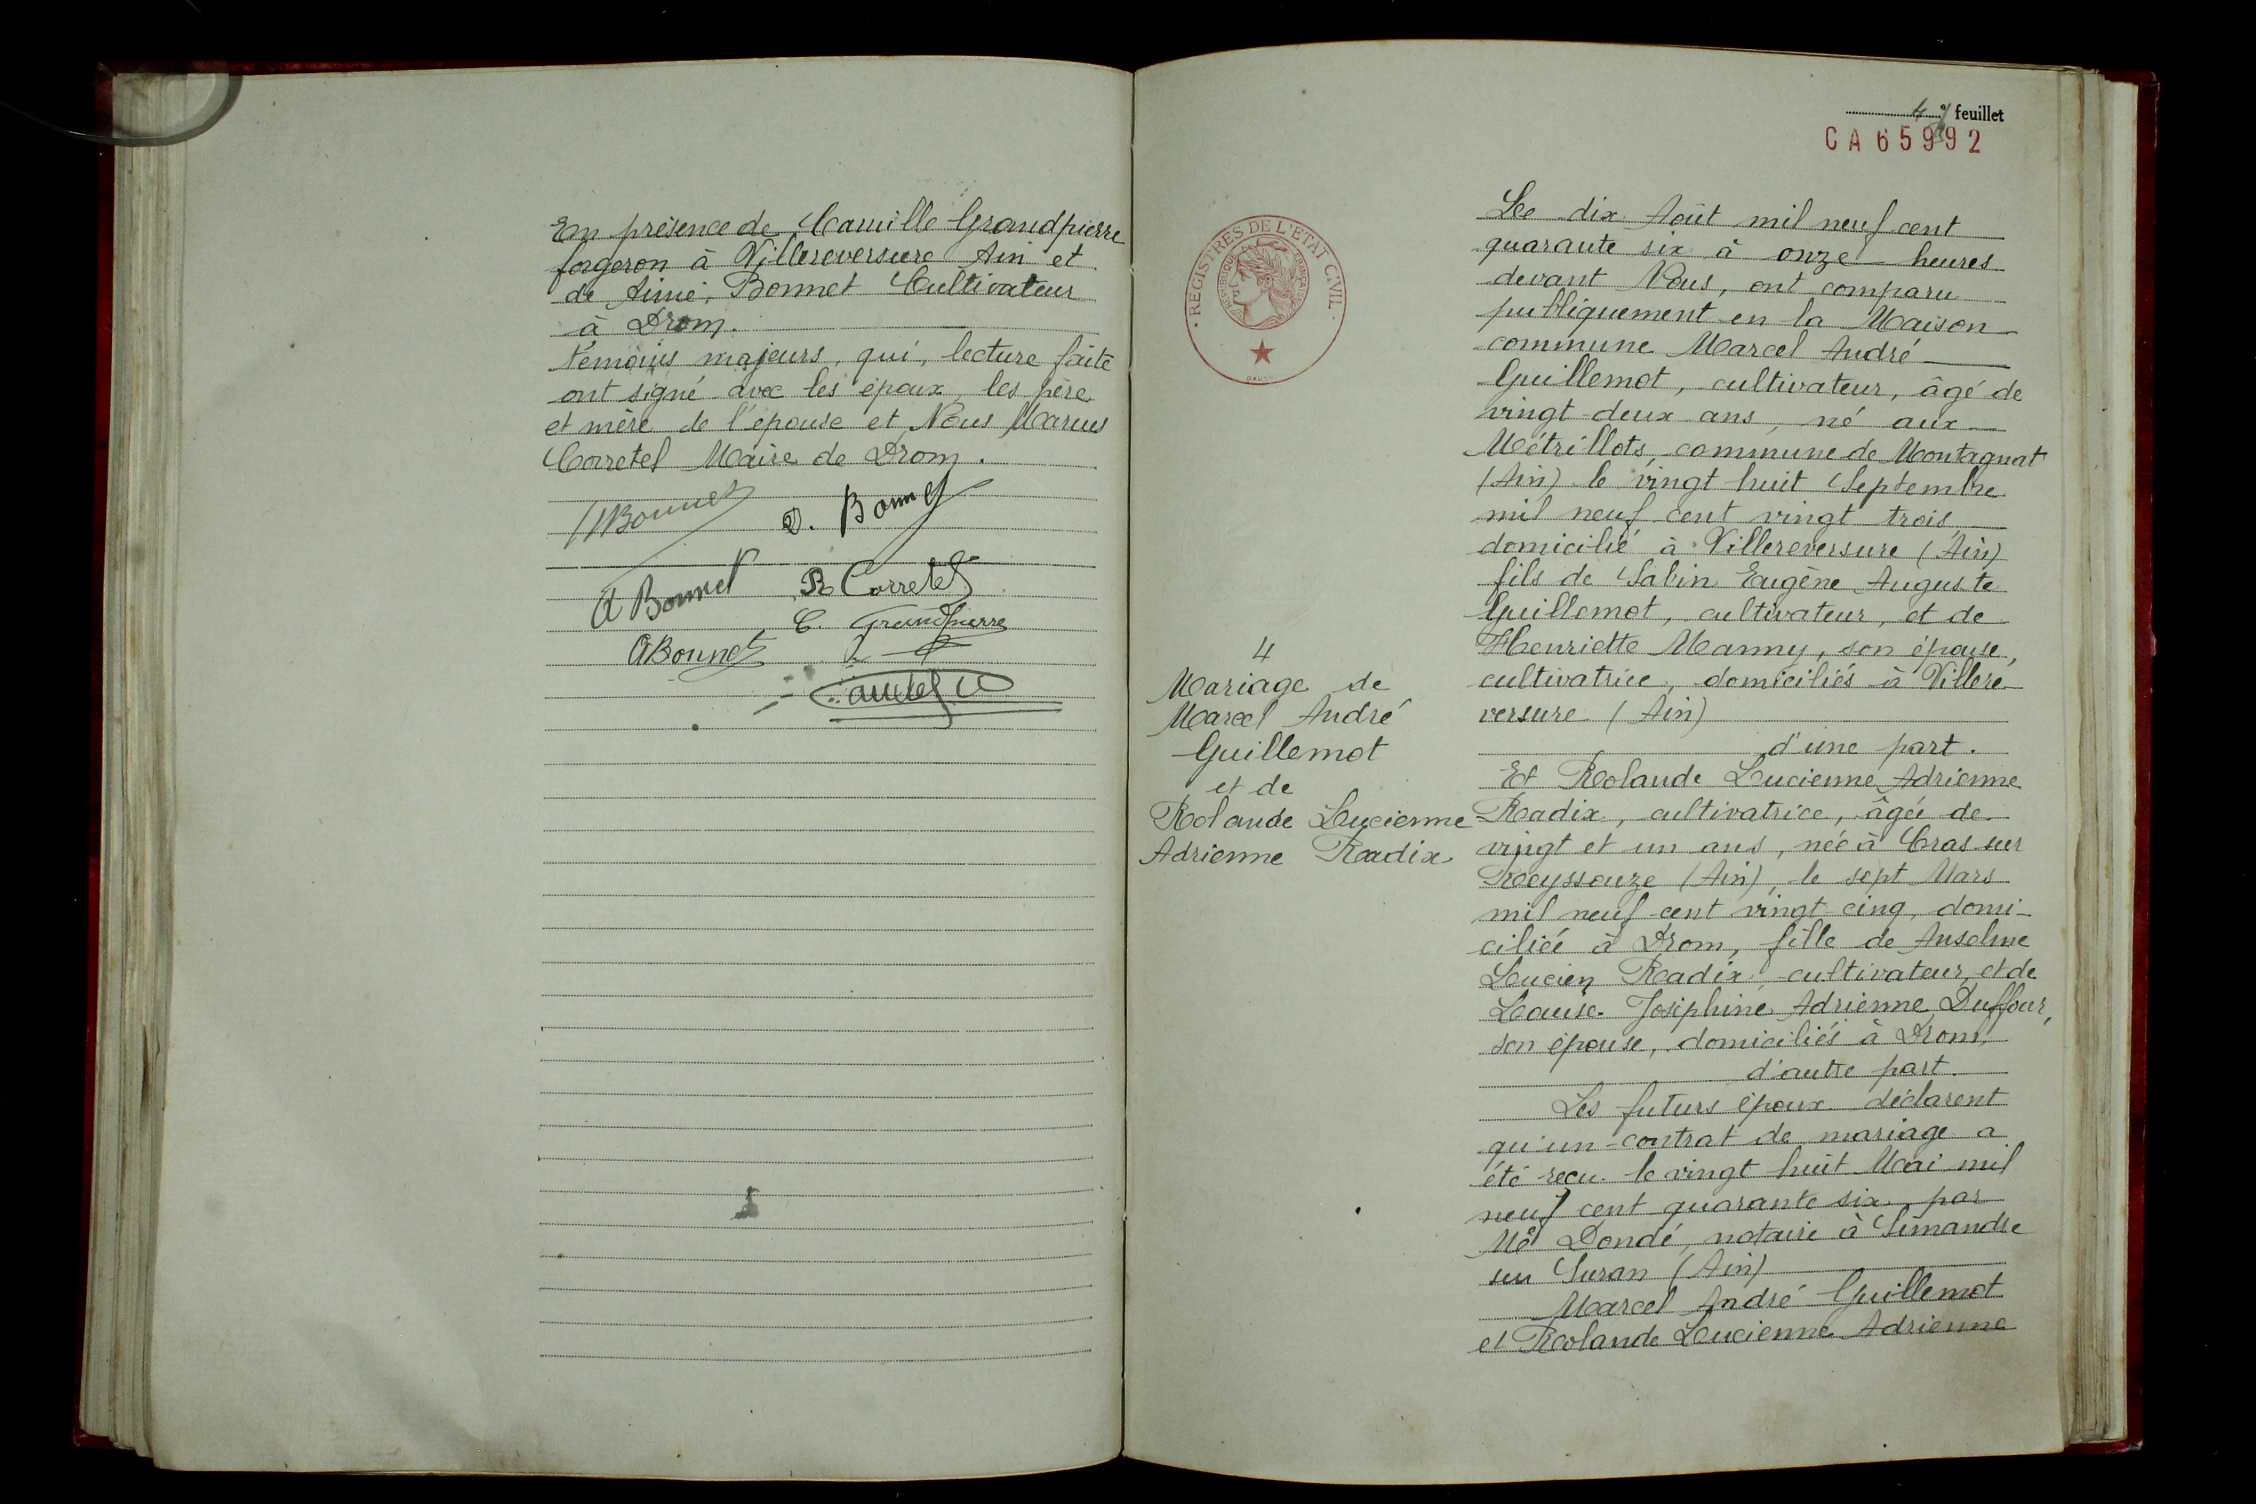 En présence de Camille Grandpierre
forgeron à Villereversure Ain et
de Aimé, Bonnet Cultivateur
à Drom.
témoins majeurs, qui, lecture faite
ont signé avec les époux, les père
et mère de l'épouse et Nous Marius
Corretel Maire de Drom.
Bonnet
D. Bonnet
A Bonnet
R Corretel
C. Grandpierre
A Bonnet
4e feuillet
CA 65992
· REGISTRES DE L'ETAT CIVIL ·
REPUBLIQUE FRANÇAISE
4
Mariage de
Marcel André
Guillemot
et de
Rolande Lucienne
Adrienne Radix
Le dix Août mil neuf cent
quarante six à onze heures
devant Nous, ont comparu
publiquement en la Maison
commune Marcel André
Guillemot, cultivateur, âgé de
vingt-deux ans, né aux
Métrillots, commune de Montagnat
(Ain) le vingt huit Septembre
mil neuf cent vingt trois,
domicilié à Villereversure (Ain)
fils de Sabin Eugène Auguste
Guillemot, cultivateur, et de
Henriette Manny, son épouse,
cultivatrice, domiciliés à Villere
versure (Ain)
d'une part.
Et Rolande Lucienne Adrienne
Radix, cultivatrice, âgée de
vingt et un ans, née à Cras sur
Reyssouze (Ain), le sept Mars
mil neuf cent vingt cinq, domi-
ciliée à Drom, fille de Anselme
Lucien Radix, cultivateur, et de
Louise Joséphine Adrienne Duffour,
son épouse, domiciliés à Drom,
d'autre part.
Les futurs époux déclarent
qu'un contrat de mariage a
été reçu le vingt huit Mai mil
neuf cent quarante six par
Me Dondé, notaire à Simandre
sur Suran (Ain)
Marcel André Guillemot
et Rolande Lucienne Adrienne